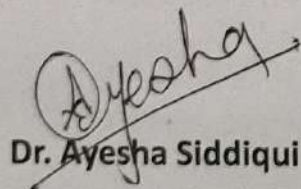 Ayesha
Dr. Ayesha Siddiqui